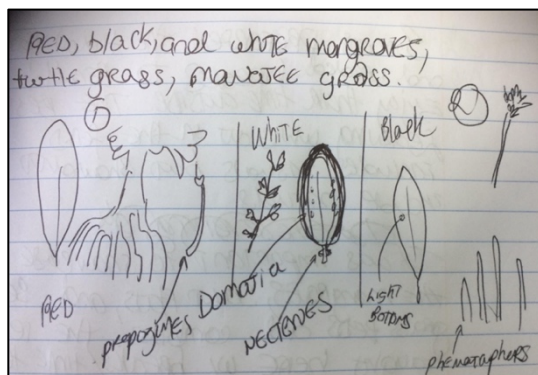 RED, black, and white mangroves,
turtle grass, manatee grass.
①
②
White
Black
RED
propogenes
Domatia
Nectenes
Light
Bottoms
phemataphers